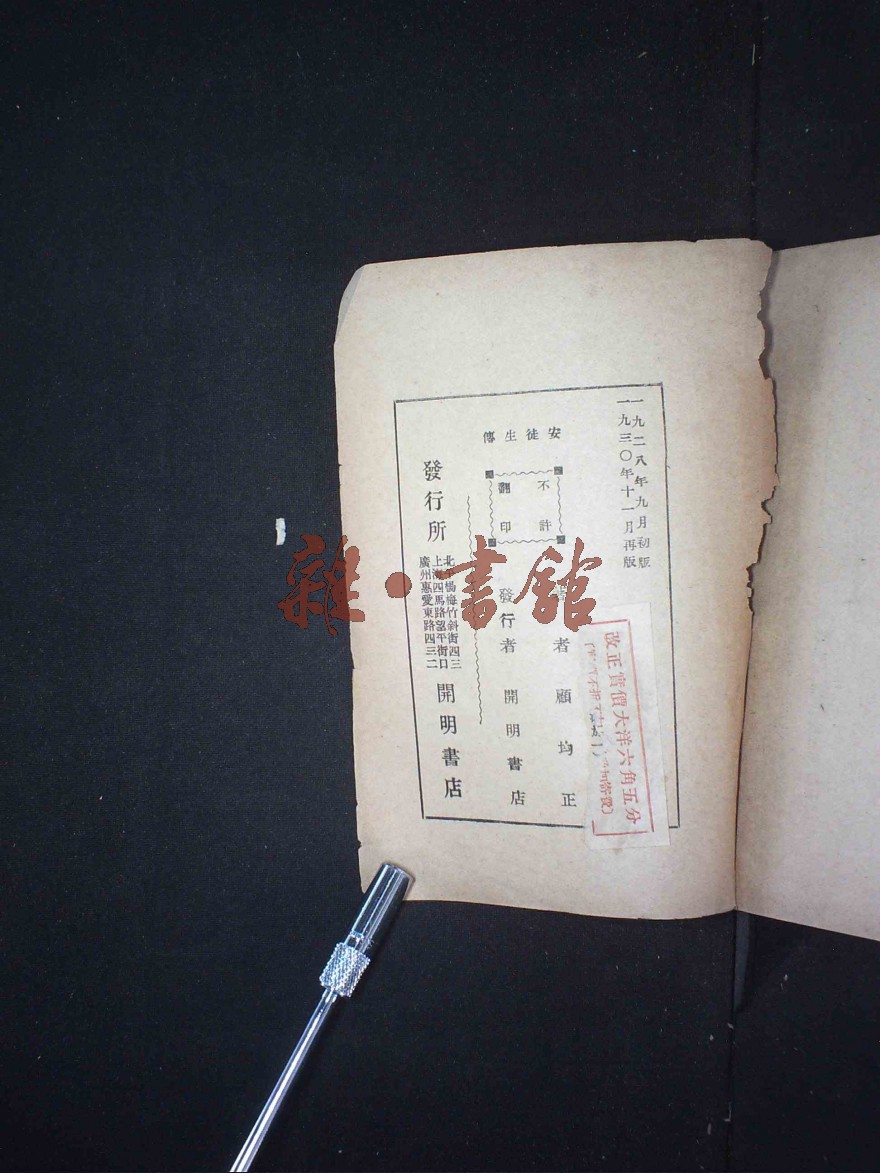 一九二八年九月初版
一九三〇年十一月再版
安徒生傳
不許
翻印
者 顧均正
發行者 開明書店
發行所
上海四馬路望平街口
廣州惠愛東路四三二
開明書店
改正實價大洋六角五分
雜·書館